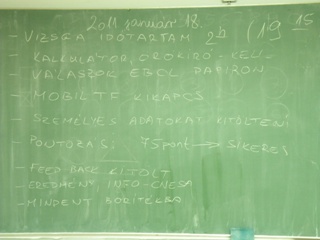 2011 január 18.
- VIZSGA IDŐTARTAM 2h (19 15
- KALKULÁTOR,
- VÁLASZOK EBCL PAPIRON
- MOBIL TF KIKAPCS
- SZEMÉLYES ADATOKAT KITÖLTENI
- PONTOZÁS: 75 pont → SIKERES
- FEED-BACK KITÖLT
- EREDMÉNY, INFO-ENESA
- MINDENT BORÍTÉKBA